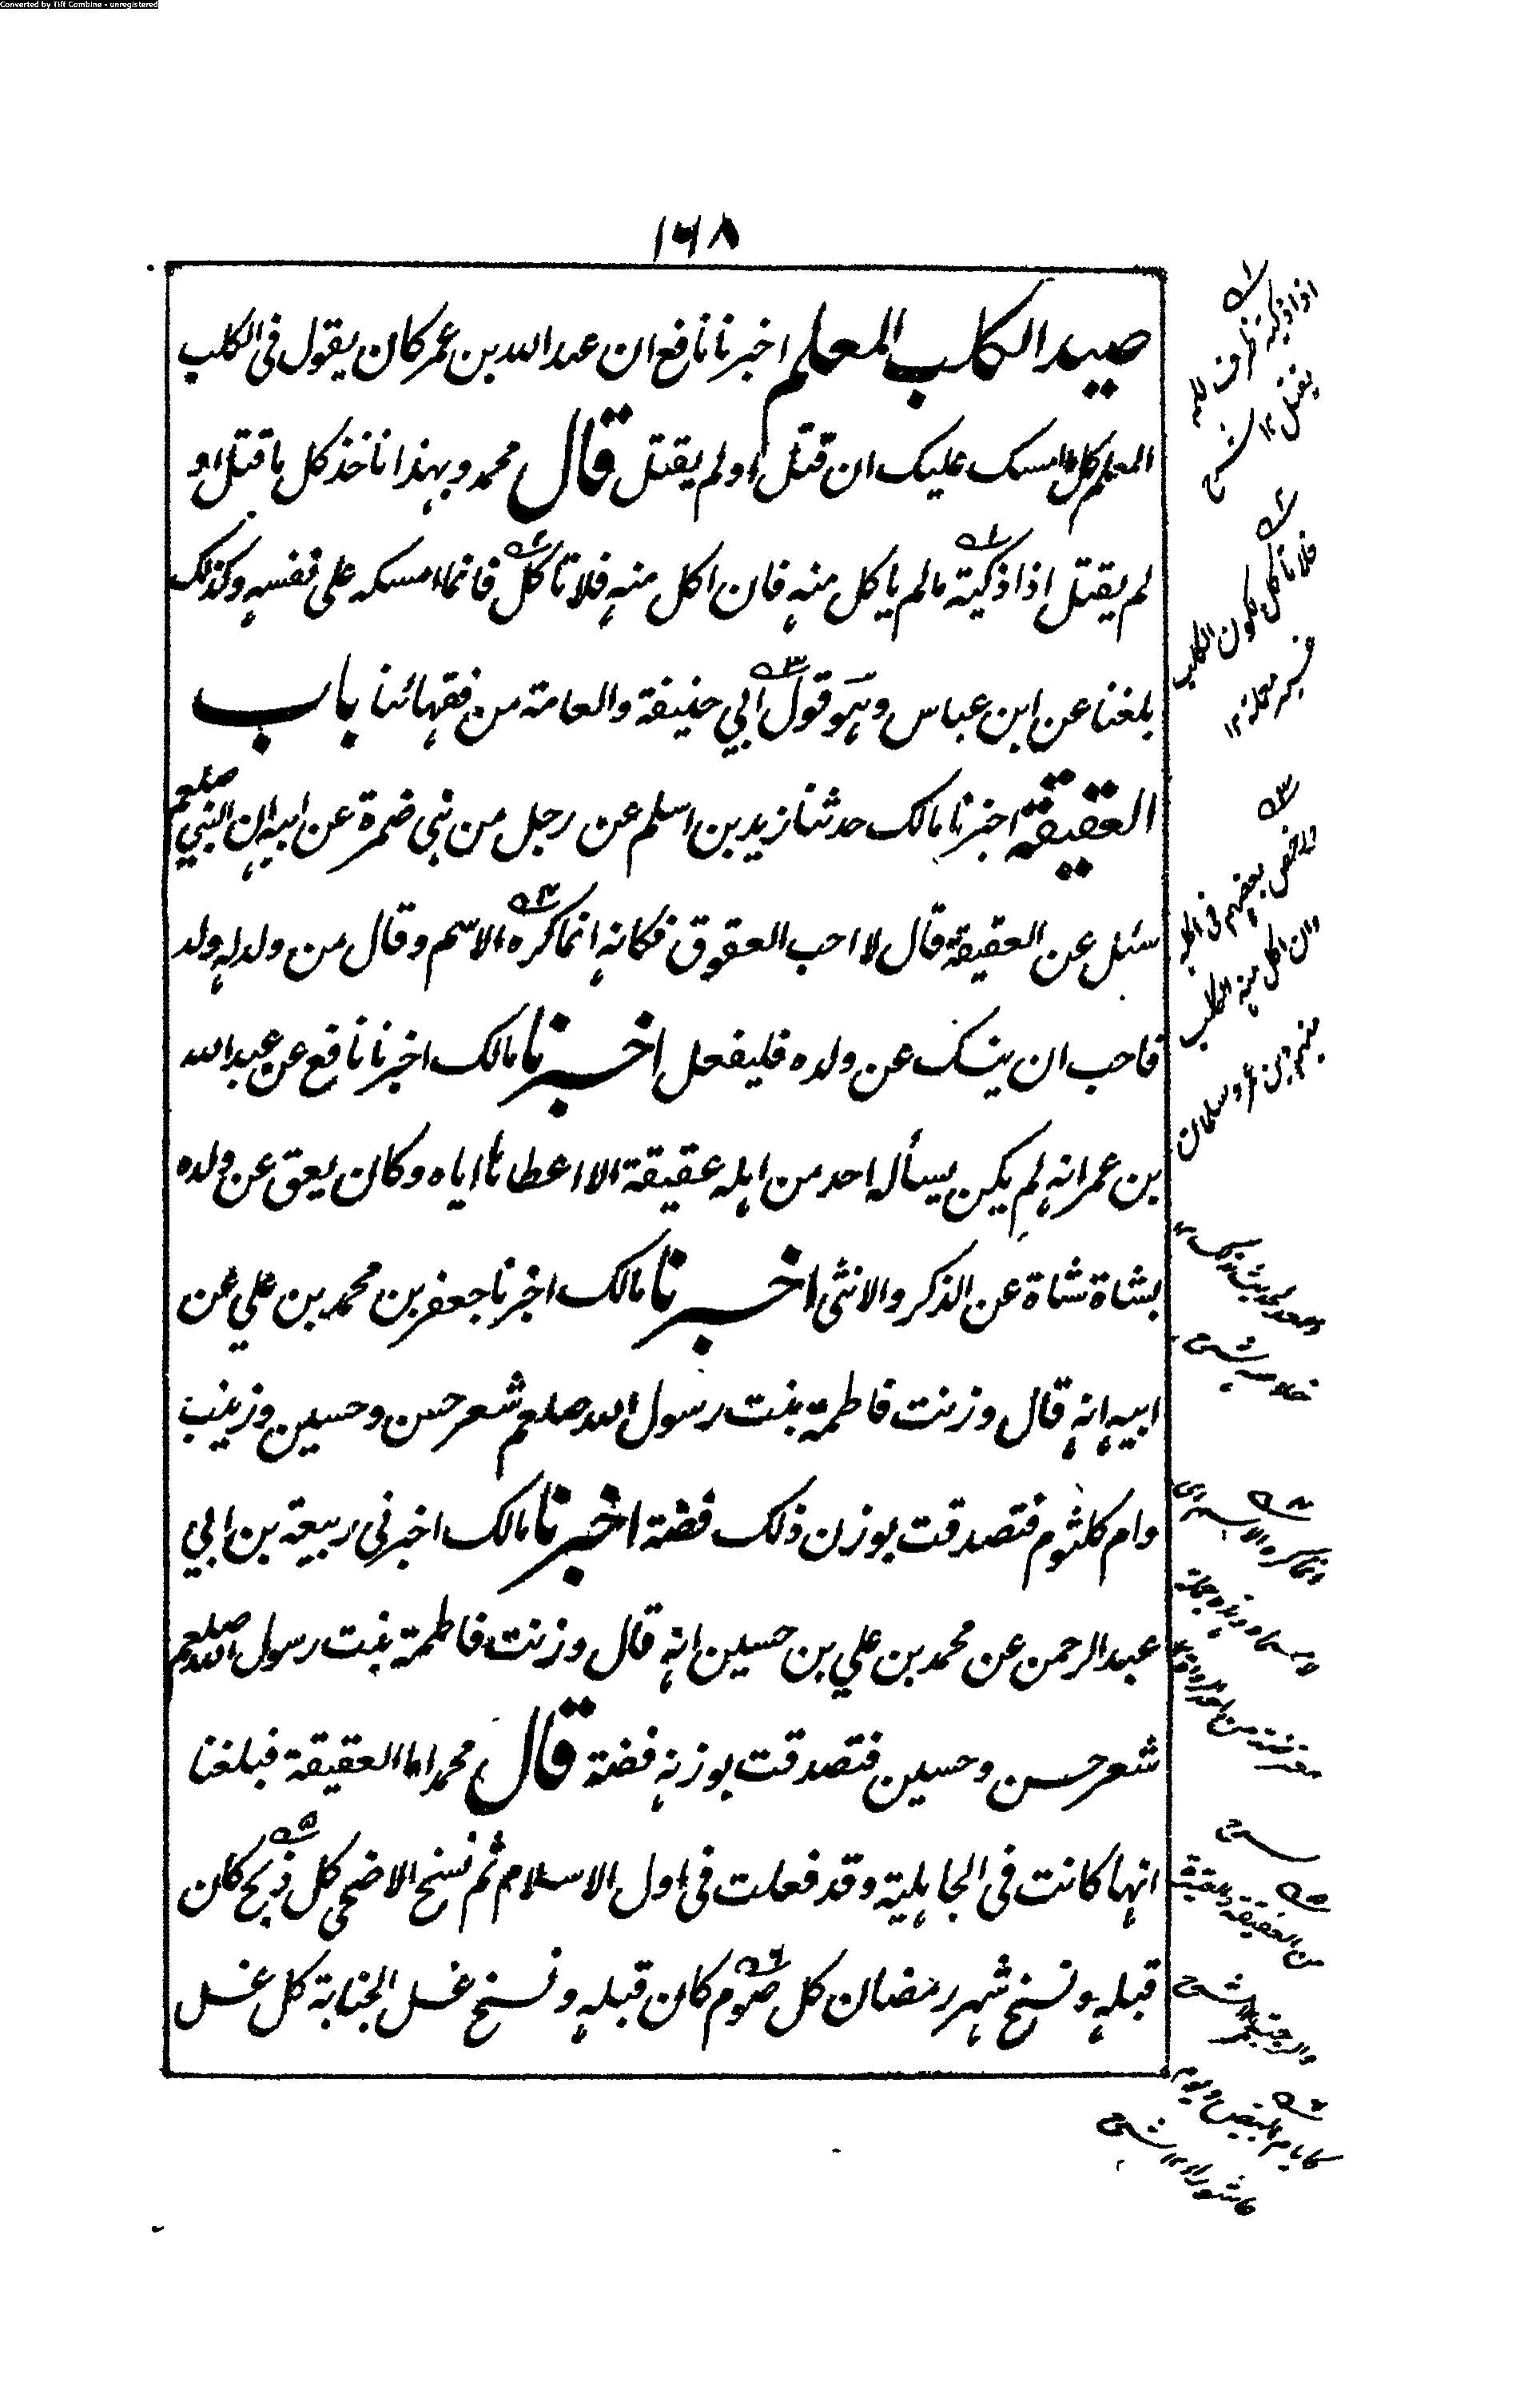 Converted by Tiff Combine - unregistered
۱۶۸
صيد الكلب المعلم اخبرنا نافع ان عبد الله بن عمر كان يقول فى الكلب
المعلم كل ما امسك عليك ان قتل او لم يقتل قال محمد وبهذا ناخذ كل ما قتل او
لم يقتل اذا ذكيته ما لم ياكل منه فان اكل منه فلا تاكل فانما امسكه على نفسه وكذلك
بلغنا عن ابن عباس وهو قول ابي حنيفة والعامة من فقهائنا باب
العقيقة اخبرنا مالك حدثنا زيد بن اسلم عن رجل من بنى ضمرة عن ابيه ان النبي صلعم
سئل عن العقيقة قال لا احب العقوق فكانه انما كره الاسم وقال من ولد له ولد
فاحب ان ينسك عن ولده فليفعل اخبرنا مالك اخبرنا نافع عن عبد الله
بن عمر انه لم يكن يسأله احد من اهله عقيقة الا اعطاها اياه وكان يعق عن ولده
بشاة شاة عن الذكر والانثى اخبرنا مالك اخبرنا جعفر بن محمد بن علي عن
ابيه انه قال وزنت فاطمة بنت رسول الله صلعم شعر حسن وحسين وزينب
وام كلثوم فتصدقت بوزن ذلك فضة اخبرنا مالك اخبرنى ربيعة بن ابي
عبد الرحمن عن محمد بن علي بن حسين انه قال وزنت فاطمة بنت رسول الله صلعم
شعر حسن وحسين فتصدقت بوزنه فضة قال محمد اما العقيقة فبلغنا
انها كانت فى الجاهلية وقد فعلت فى اول الاسلام ثم نسخ الاضحى كل ذبح كان
قبله ونسخ شهر رمضان كل صوم كان قبله ونسخ غسل الجنابة كل غسل
فلا تاكل لكون الكلب
وان اكل منه الكلب
منهم ابن عمر وسلمان